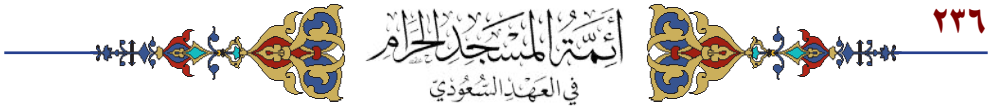 ٢٣٦
أئمة المسجد الحرام
في العهد السعودي